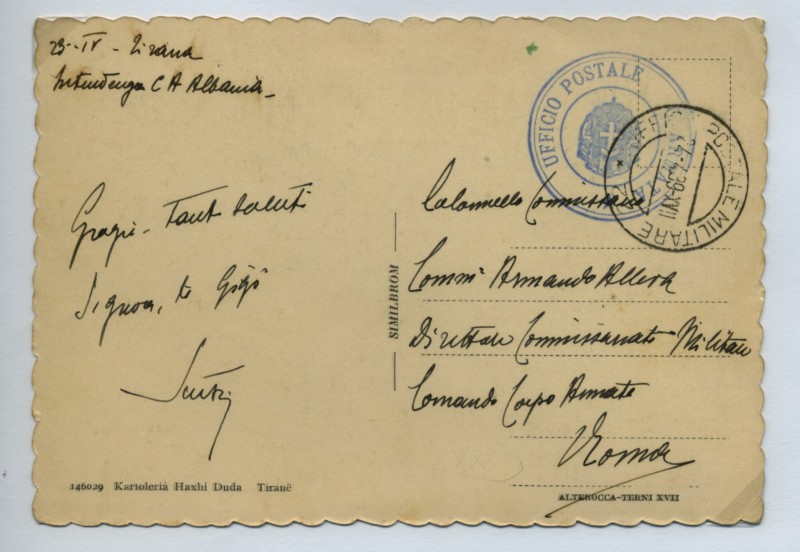 23-IV- Tirana
Intendenza C A Albania
Grazie - Tanti saluti
Signora, te Gigi
UFFICIO POSTALE
POSTALE MILITARE
27.4.39.XVII
SIMILBROM
Colonnello Commissario
Comm. Armando Allera
Direttore Commissariato Militare
Comando Corpo Armata
Roma
146029 Kartoleria Haxhi Duda Tiranë
ALTEROCCA-TERNI XVII